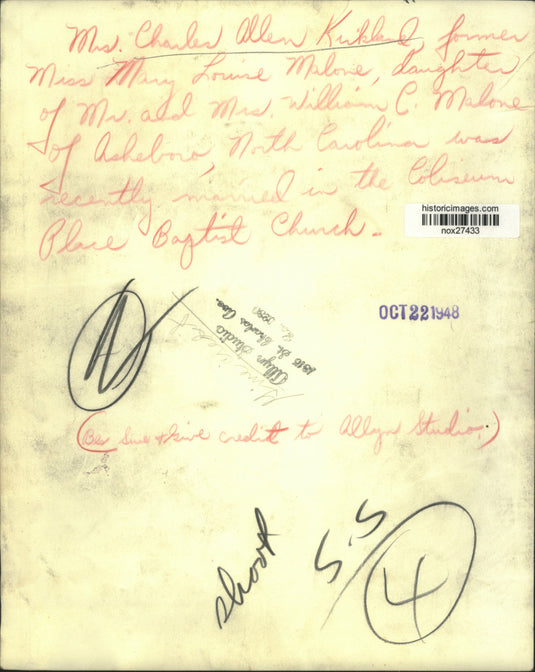 Mrs. Charles Allen Kirkland, former
Miss Mary Louise Malone, daughter
of Mr. and Mrs. William C. Malone
of Asheboro, North Carolina was
recently married in the Coliseum
Place Baptist Church.
historicimages.com
nox27433
OCT 22 1948
Allyn Studio
1515 St. Charles Ave.
(Be sure + give credit to Allyn Studio.)
shoot
S.S
4